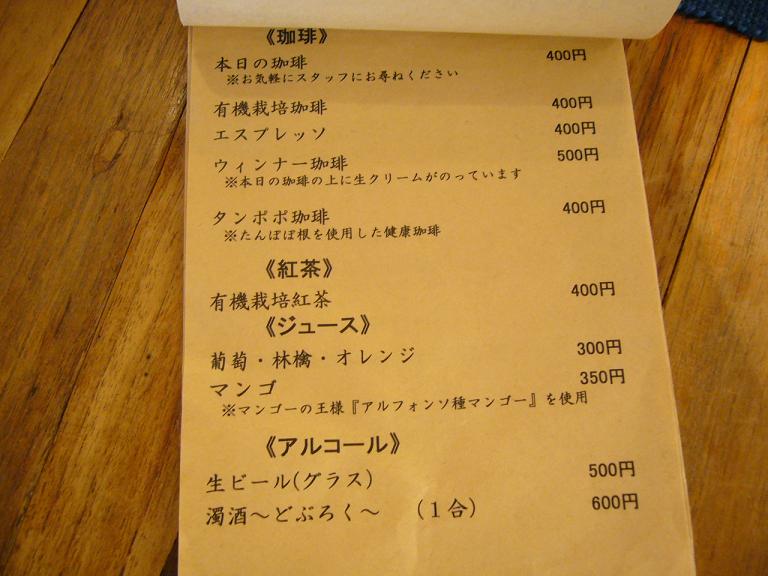 《珈琲》
本日の珈琲 400円
※お気軽にスタッフにお尋ねください
有機栽培珈琲 400円
エスプレッソ 400円
ウィンナー珈琲 500円
※本日の珈琲の上に生クリームがのっています
タンポポ珈琲 400円
※たんぽぽ根を使用した健康珈琲
《紅茶》
有機栽培紅茶 400円
《ジュース》
葡萄・林檎・オレンジ 300円
マンゴ 350円
※マンゴーの王様『アルフォンソ種マンゴー』を使用
《アルコール》
生ビール(グラス) 500円
濁酒～どぶろく～ （１合） 600円